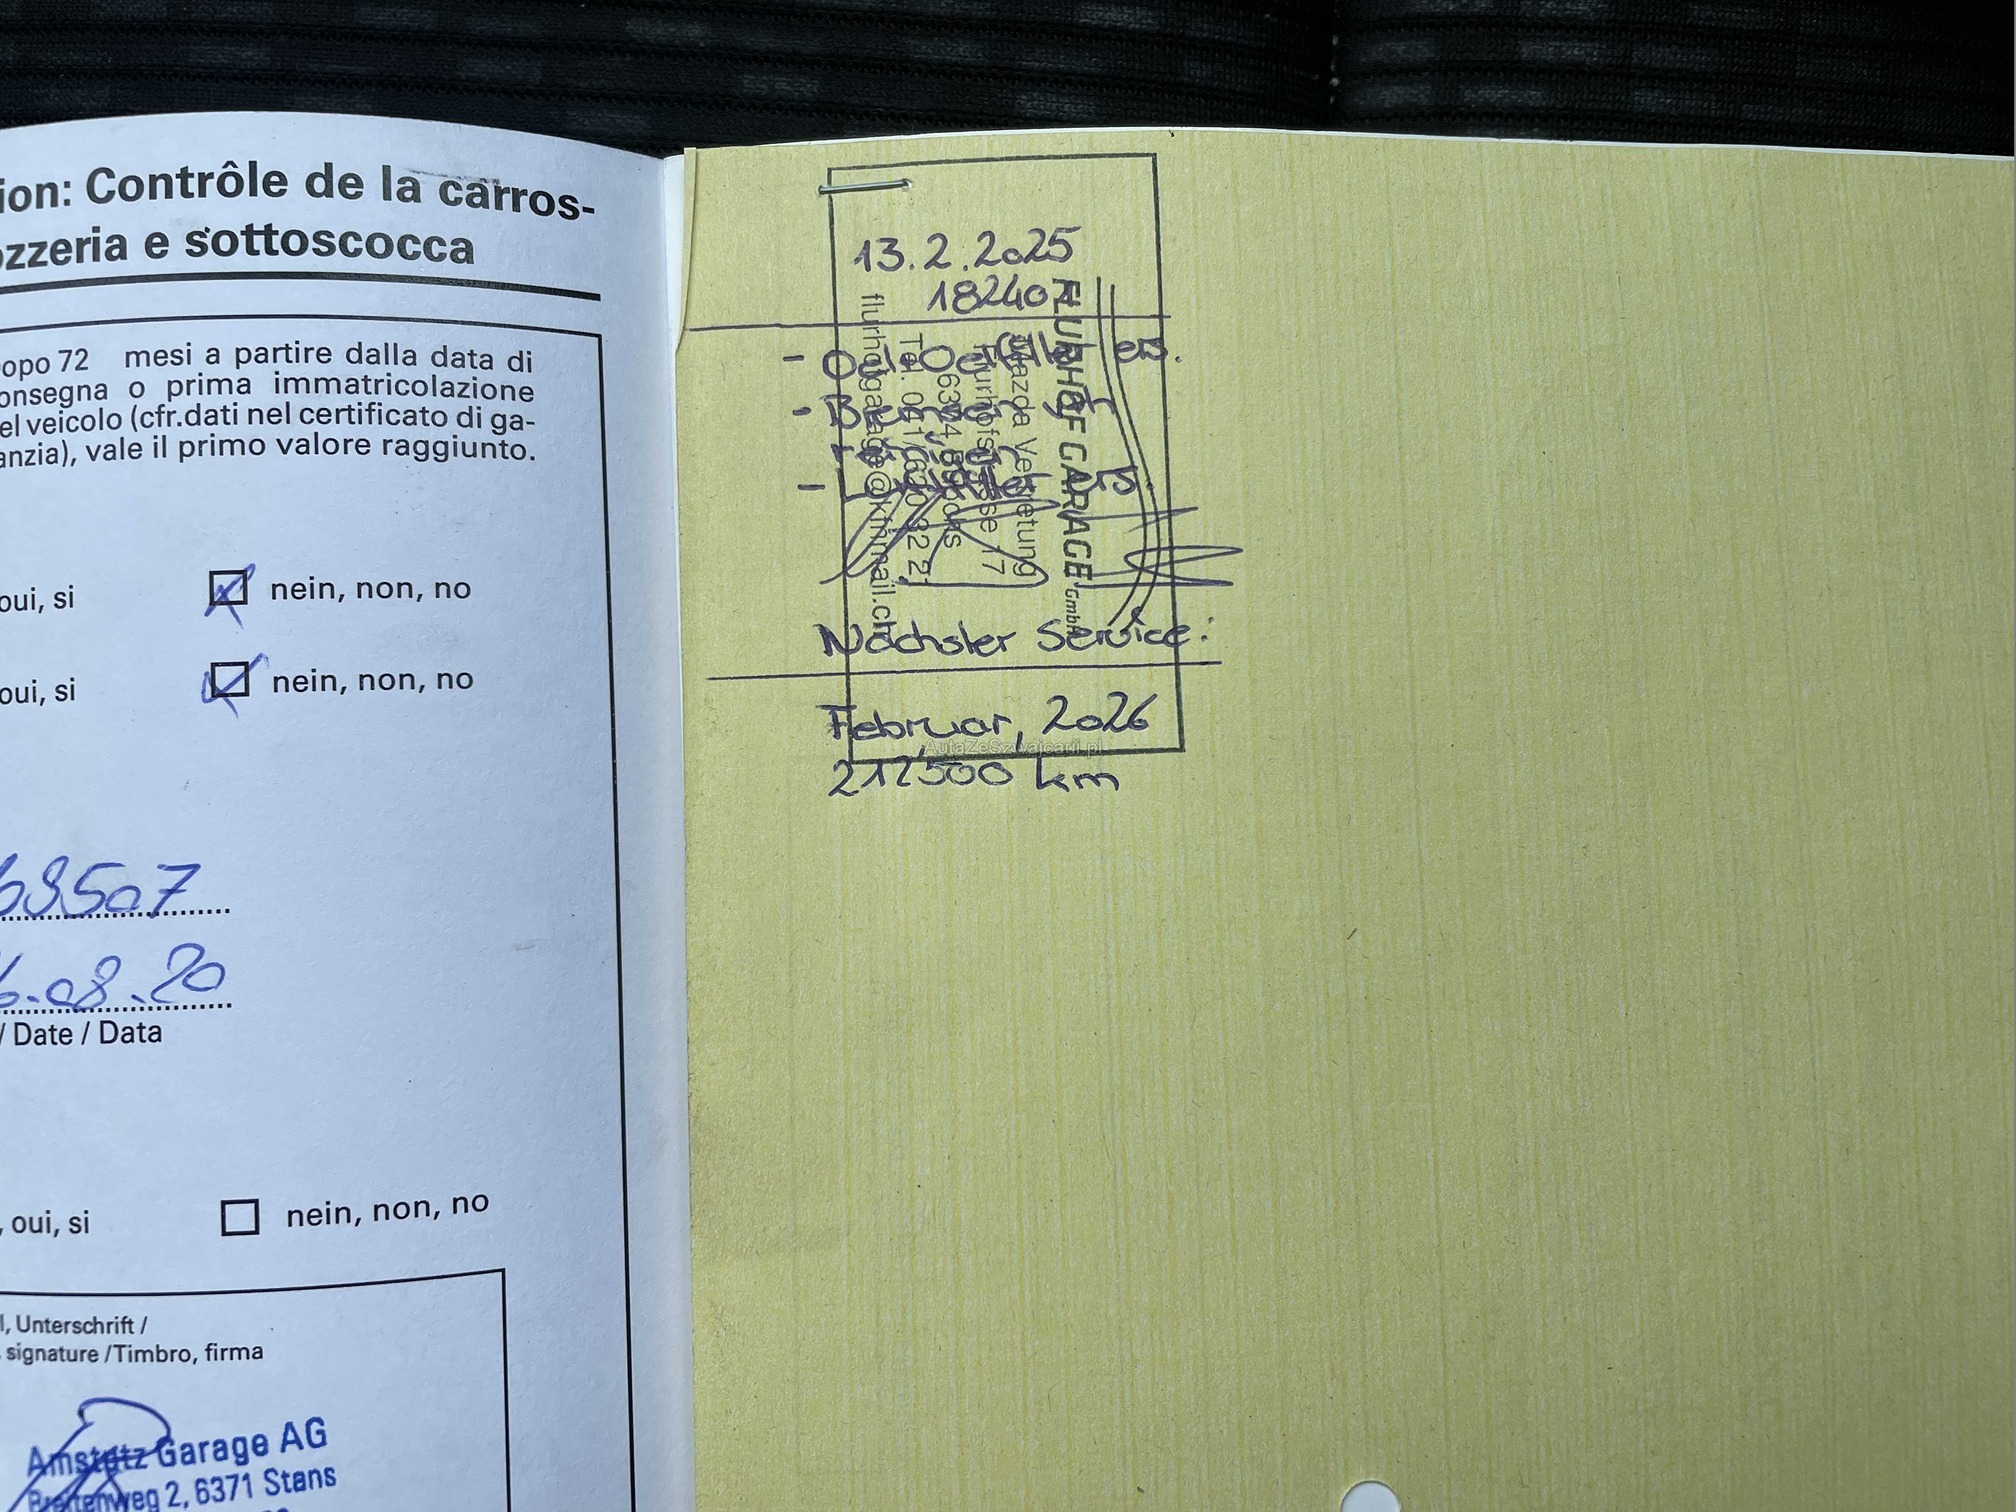 ion: Contrôle de la carros-
ozzeria e sottoscocca
opo 72 mesi a partire dalla data di
onsegna o prima immatricolazione
el veicolo (cfr.dati nel certificato di ga-
anzia), vale il primo valore raggiunto.
oui, si nein, non, no
oui, si nein, non, no
3507
08.20
/ Date / Data
, oui, si nein, non, no
l, Unterschrift /
signature /Timbro, firma
Amstutz Garage AG
Breitenweg 2, 6371 Stans
13.2.2025
- Oel + Oelfilter ers.
- Bremsen
- ers.
Nächster Service:
Februar, 2026
212500 km
FLURHOF GARAGE GmbH
Mazda Vertretung
Flurhofstrasse 17
6374 Buochs
flurhofgarage@kfnmail.ch
AutaZeSzwajcarii.pl